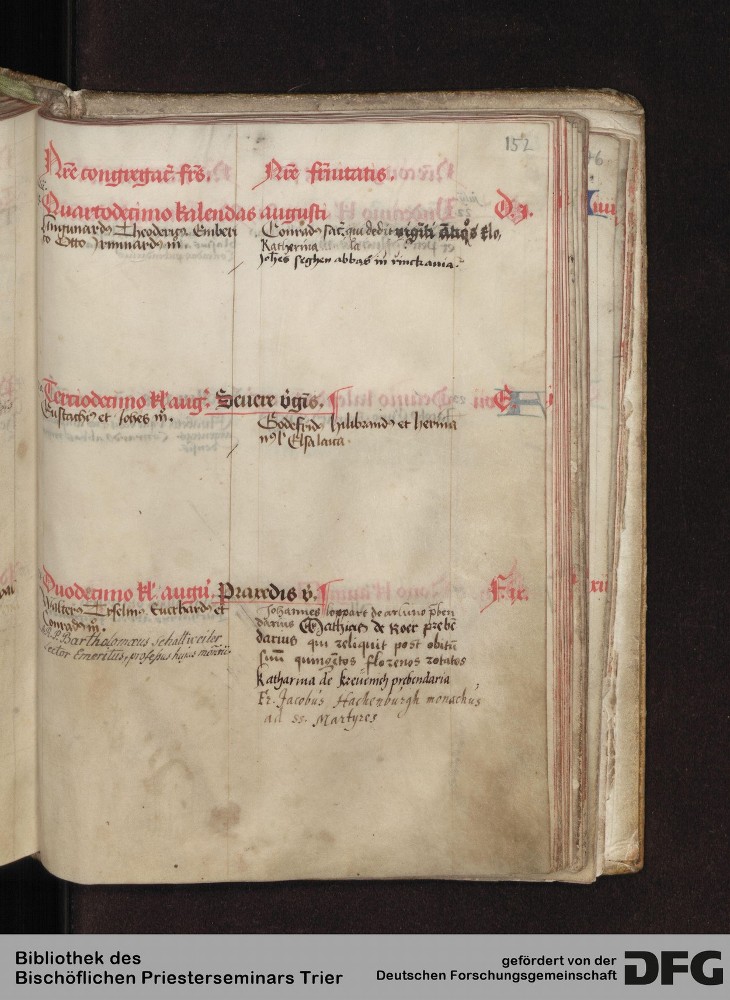 152
Nr̄e congregac̄ fr̄s. Nr̄e fr̄nitatis.
Quartodecimo kalendas augusti D 3.
Theoderiꝯ
to Otto Irminardꝯ m̄.
Conradꝯ sac̄. qui dedit
Katherina la
Joh̄es seghen abbas in
Terciodecimo kl' aug'. Severe v̄gīs. E
Eustachiꝯ et Joh̄es m̄.
Godefridꝯ hilibrandꝯ et herma
nꝯ l' Elsa laica.
Duodecimo kl' augu'. Praxedis v̄. F. ix.
Walterꝯ Erselmꝯ Everhardꝯ et
Conradꝯ m̄.
R. P. Bartholomæus schaltweiler
Lector Emeritus, professus hujus mōrii
Johannes loppart de p̄ben
darius Mathias de Roer prebē
darius qui reliquit post obitū
suū quingētos florenos rotatos
Katharina de kreuemch prebendaria
Fr. Jacobus Hachenburgh monachus
ad ss. Martyres
Bibliothek des
Bischöflichen Priesterseminars Trier
gefördert von der
Deutschen Forschungsgemeinschaft DFG